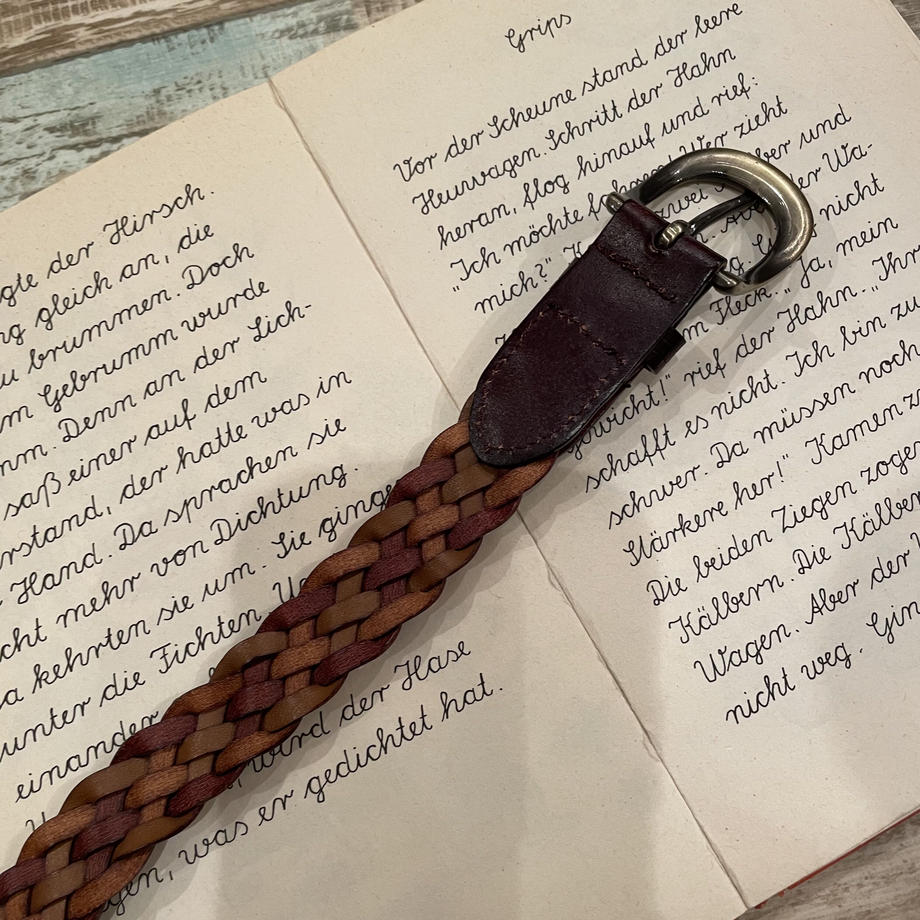 der Hirsch.
gleich an, die
brummen. Doch
Gebrumm wurde
Denn an der Lich-
saß einer auf dem
der hatte was in
Hand. Da sprachen sie
mehr von Dichtung.
kehrten sie um. Sie
unter die Fichten.
einander
wird der Hase
was er gedichtet hat.
Grips
Vor der Scheune stand der leere
Heuwagen. Schritt der Hahn
heran, flog hinauf und rief:
"Ich möchte Wer zieht
mich?" zwei und
der Wa-
nicht
Fleck." "Ja, mein
rief der Hahn. "Ihr
schafft es nicht. Ich bin zu
schwer. Da müssen noch
Stärkere her!" Kamen
Die beiden Ziegen
Kälbern. Die
Wagen. Aber der
nicht weg.